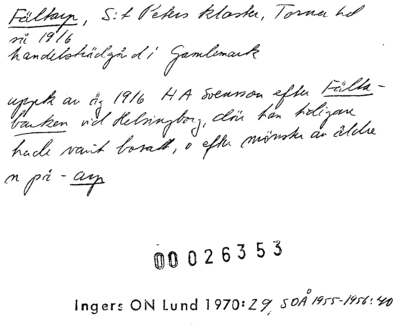 Fältarp, S:t Peters kloster, Torna hd
så 1916
handelsträdgård i Gamlemark
uppk av äg 1916 H A Svensson efter Fälta-
backen vid Helsingborg, där han tidigare
hade varit bosatt, o efter mönster av äldre
n på - arp
00026353
Ingers ON Lund 1970:29, SOÅ 1955-1956:40